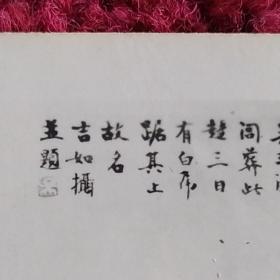 閭葬此
越三日
有白虎
踞其上
故名
吉如攝
並題